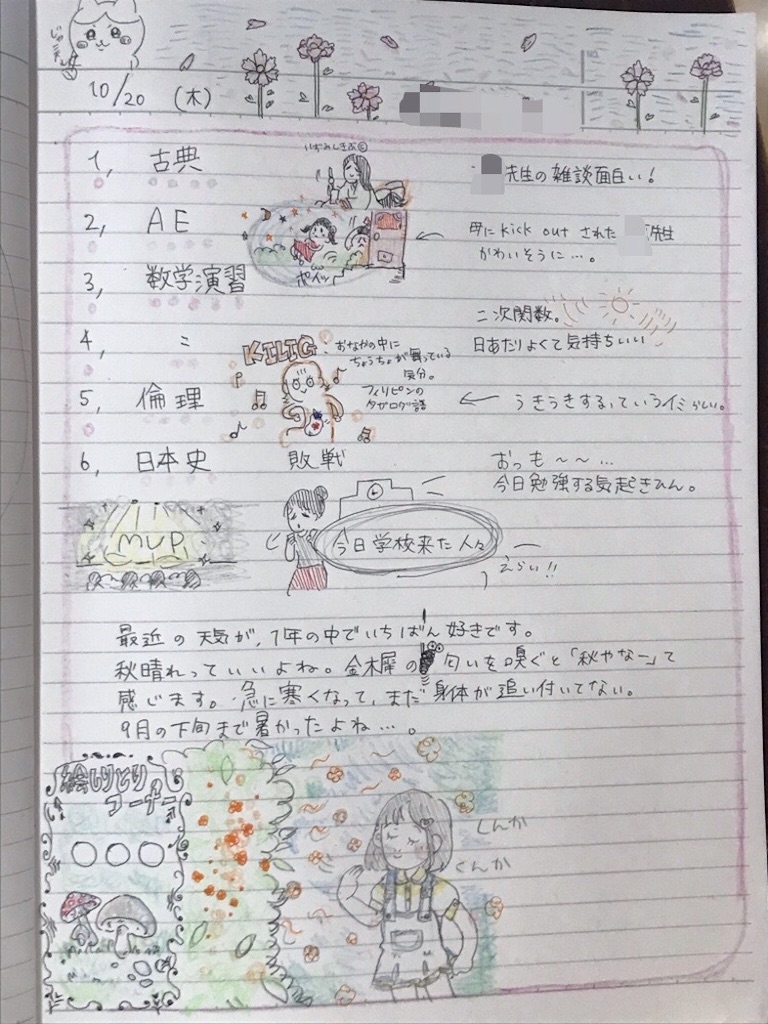 10/20 (木)
1, 古典
先生の雑談面白い!
2, AE
母にkick outされた 先生
かわいそうに…。
ポイッ
3, 数学演習
二次関数。
日あたりよくて気持ちいい
4, 〃
KILIG
おなかの中に
ちょうちょが舞っている
気分。
フィリピンの
タガログ語
5, 倫理
うきうきするっていうイミらしい。
6, 日本史 敗戦
おっも〜〜…
今日勉強する気起きひん。
MVP
今日学校来た人々
えらい!!
最近の天気が、1年の中でいちばん好きです。
秋晴れっていいよね。金木犀の匂いを嗅ぐと「秋やなー」て
感じます。急に寒くなって、まだ身体が追い付いてない。
9月の下旬まで暑かったよね…。
絵しりとり
コーナー
○○○
くんか